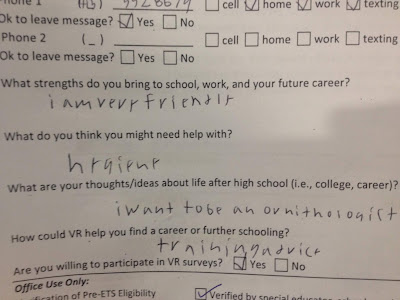 Phone 1 ☐ cell ☑ home ☑ work ☑ texting
Ok to leave message? ☑ Yes ☐ No
Phone 2 (_) ☐ cell ☐ home ☐ work ☐ texting
Ok to leave message? ☐ Yes ☐ No
What strengths do you bring to school, work, and your future career?
i am very friendly
What do you think you might need help with?
What are your thoughts/ideas about life after high school (i.e., college, career)?
i want to be an ornithologist
How could VR help you find a career or further schooling?
training advice
Are you willing to participate in VR surveys? ☑ Yes ☐ No
Office Use Only:
of Pre-ETS Eligibility ☑ Verified by special